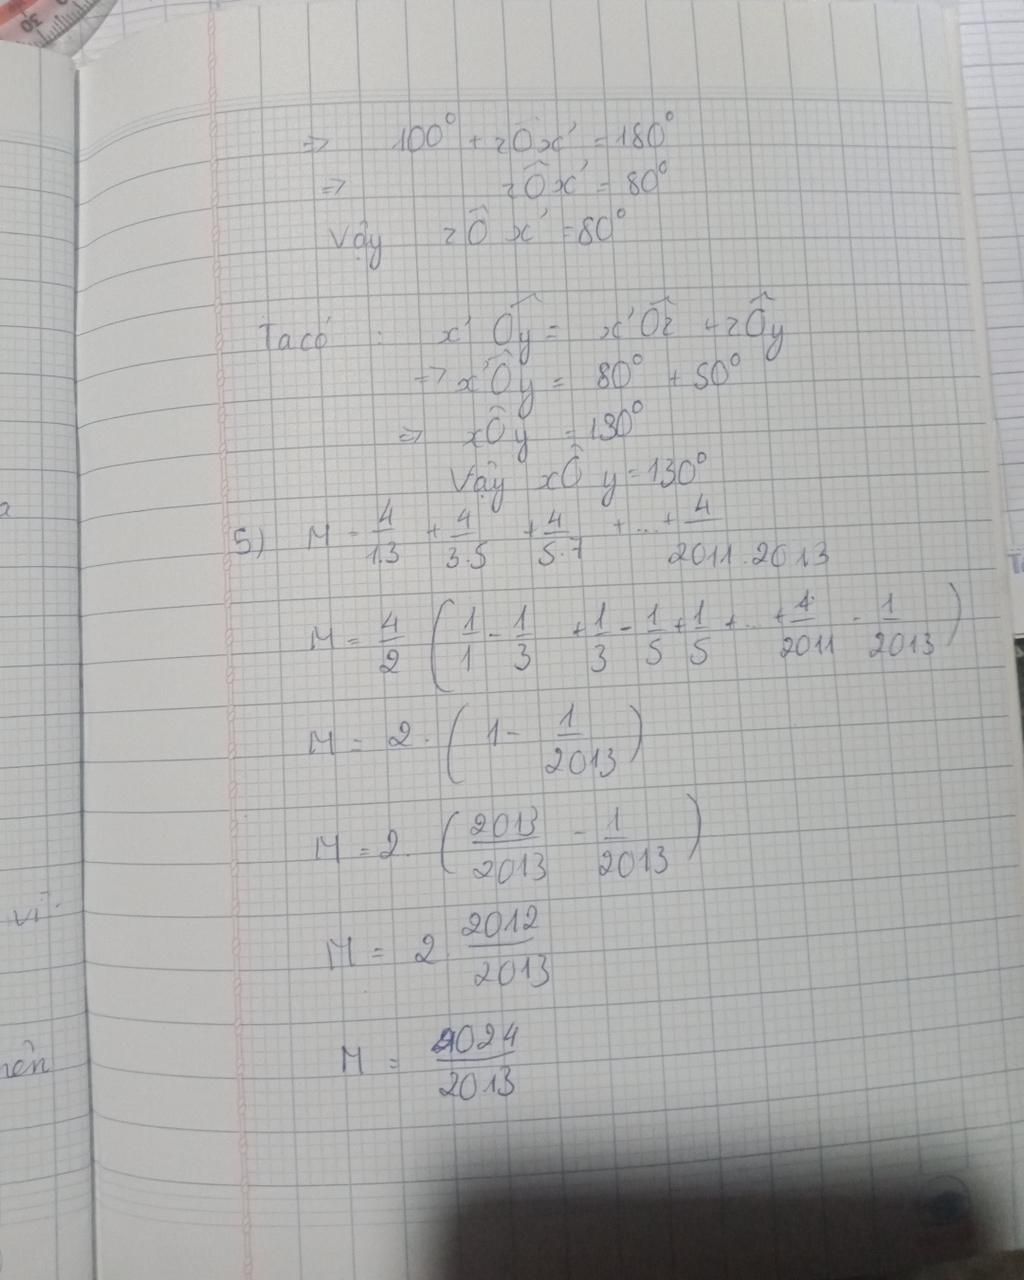 30
=> 100° + zÔx' = 180°
=> zÔx' = 80°
Vậy zÔx' = 80°
Ta có : x'Ôy = x'Ôz + zÔy
=> x'Ôy = 80° + 50°
=> xÔy = 130°
Vậy xÔy = 130°
5) M = 4/1.3 + 4/3.5 + 4/5.7 + ... + 4/2011.2013
M = 4/2 ( 1/1 - 1/3 + 1/3 - 1/5 + 1/5 + ... + 1/2011 - 1/2013 )
M = 2 . ( 1 - 1/2013 )
M = 2. ( 2013/2013 - 1/2013 )
M = 2 . 2012/2013
M = 4024/2013